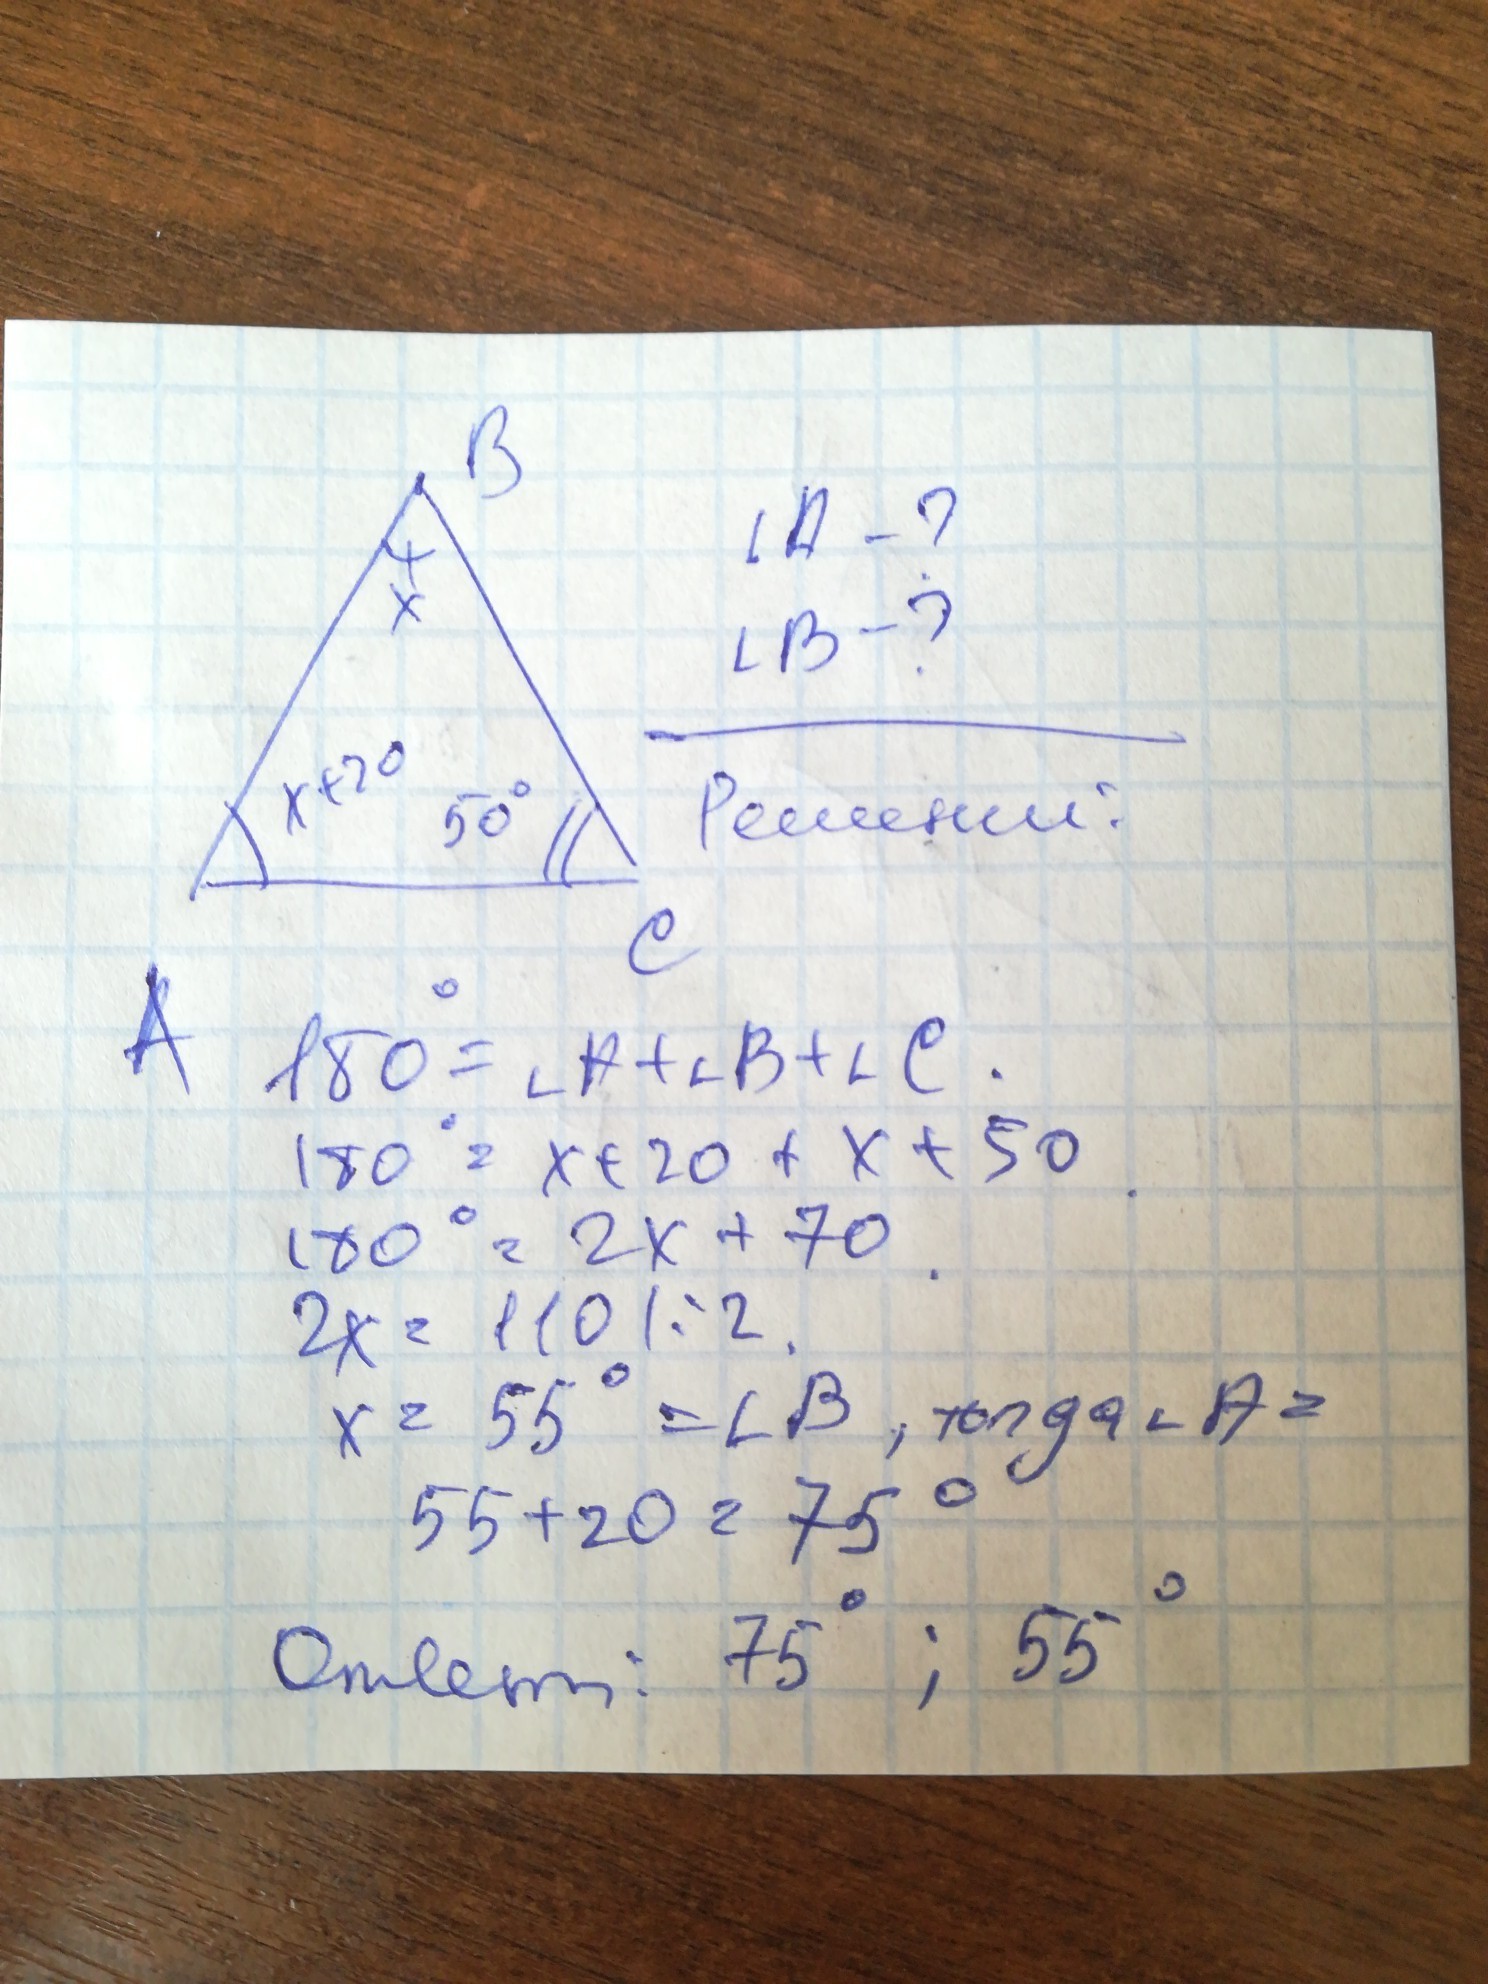 B
∠A - ?
x
∠B - ?
x+20
50°
Решении:
C
A
180° = ∠A + ∠B + ∠C.
180° = x + 20 + x + 50.
180° = 2x + 70.
2x = 110 |:2.
x = 55° = ∠B, тогда ∠A =
55 + 20 = 75°
Ответ: 75° ; 55°